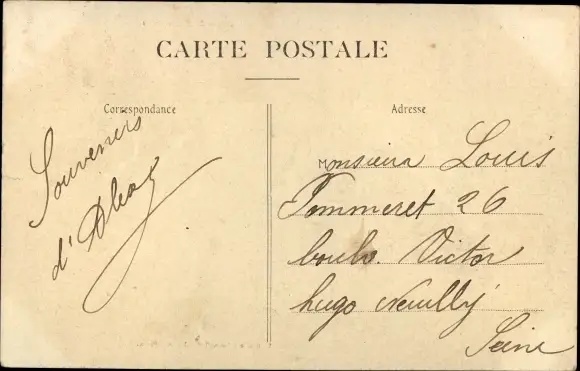 CARTE POSTALE
Correspondance
Adresse
Souvenirs
d'
Monsieur Louis
Pommeret 26
boulv. Victor
hugo Neuilly
Seine